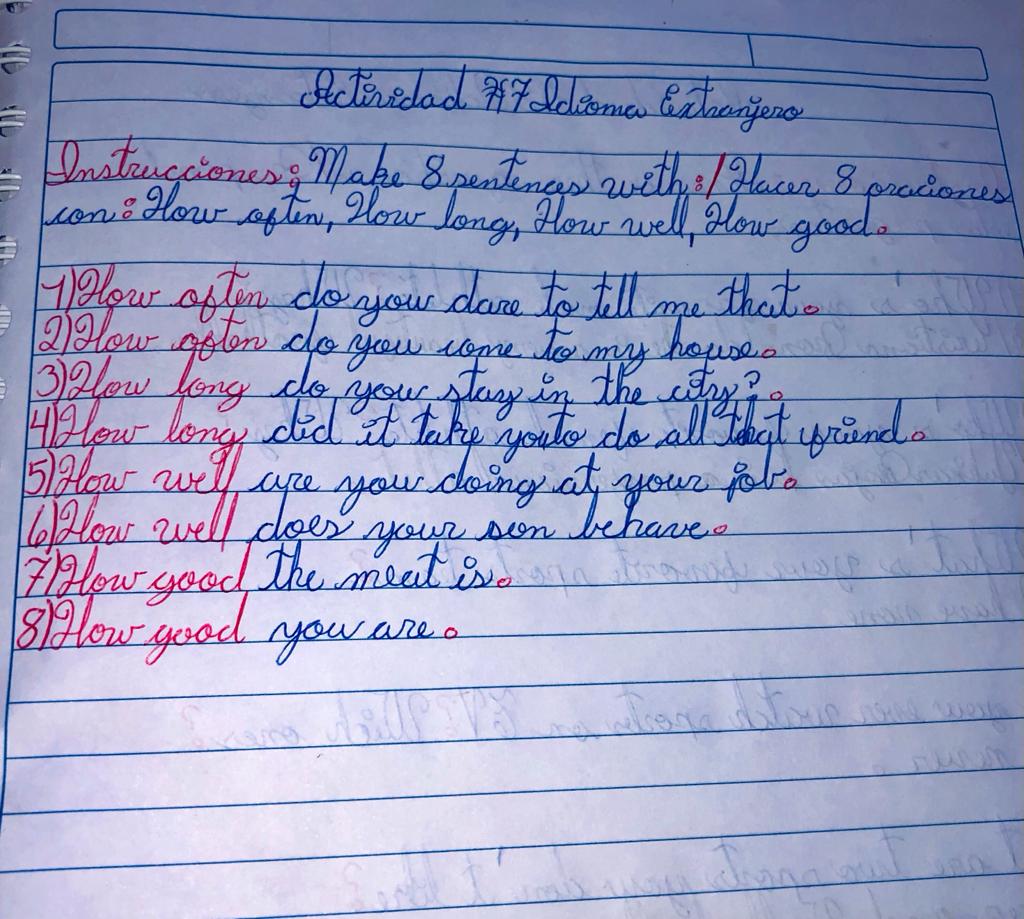 Actividad #7 Idioma Extranjero
Instrucciones: Make 8 sentences with:/Hacer 8 oraciones
con: How often, How long, How well, How good.
1)How often do you dare to tell me that.
2)How often do you come to my house.
3)How long do you stay in the city?.
4)How long did it take you to do all that friend.
5)How well are you doing at your job.
6)How well does your son behave.
7)How good the meat is.
8)How good you are.